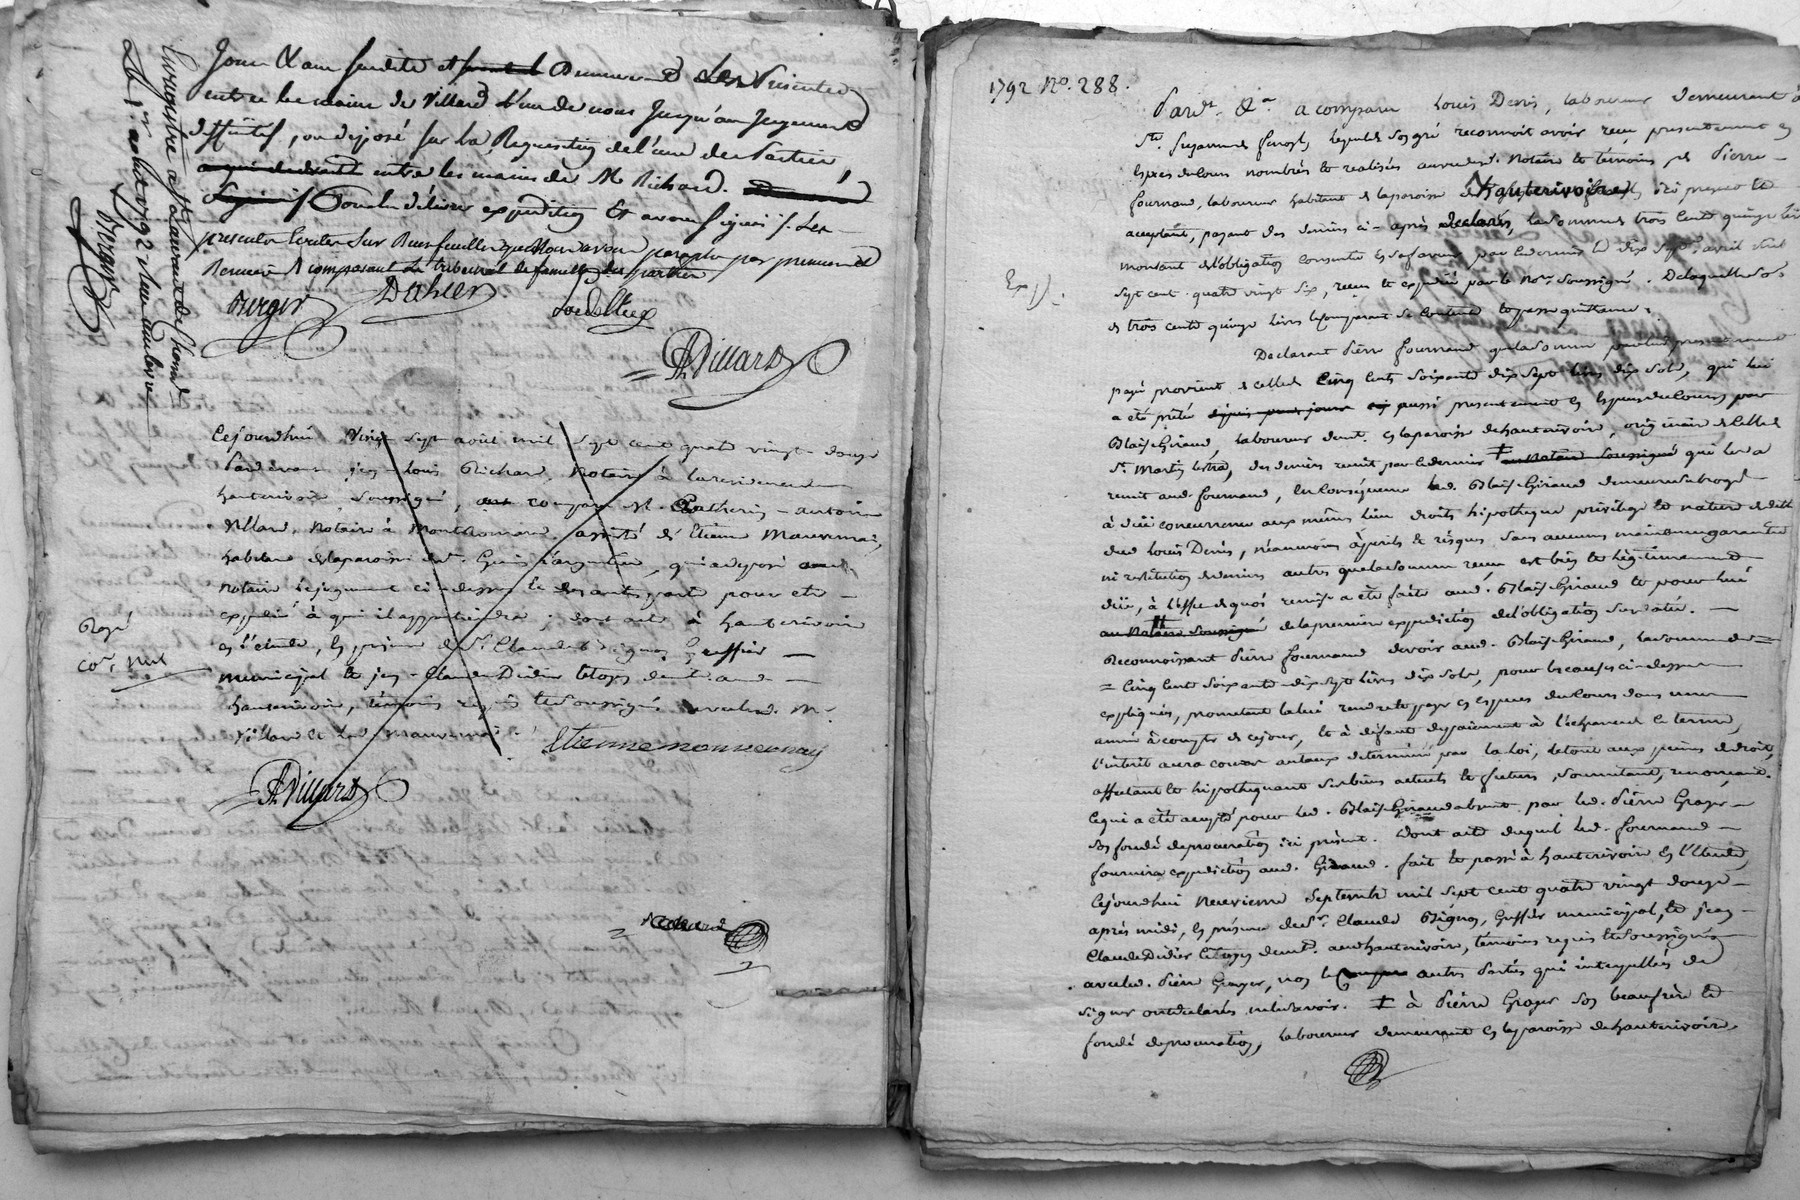 Jour & an susdits et Demeurera Les présentes
entre les mains de Villard l'un de nous jusqu'au jugement
deffinitif, ou déposé sur la Requisition de l'une des Parties
entre les mains de Me Richard.
pour en délivrer expedition Et avons signés
présentes écrites sur que nous avons paraphé par premiere &
derniere & composant le tribunal de famille des parties
Burgin
Dahier
AVillard
Enregistré à St Laurent de Chamd
le 1er aout 1792
Cejourdhui vingt sept août mil sept cent quatre vingt douze
Pardevant jean Louis Richard, Notaire à la residence de
hauterivoire soussigné, a comparu M. Catherin antoine
Villard, notaire à Montromand, assisté d'Etienne Mauvernay,
habitant de la paroisse de St. Genis l'argentiere, qui a déposé aud.
notaire le jugement ci-dessus et des autres parts pour etre
expedié à qui il appartiendra ; dont acte à hauterivoire
en l'etude, en presence de Sr. Claude greffier
municipal et jean Claude Didier Letoys demt. aud.
hauterivoire, témoins requis et soussignés avec led. Mr.
Villard et led. Mauvernai.
Rayé
cox nul
Etienne mauvernay
AVillard
Richard
1792 No. 288.
Pardt. &a. a comparu Louis Denis, laboureur demeurant à
Ste. , lequel de son gré reconnoit avoir reçu presentement en
especes de cours nombrés et realisés au vu dud. Notaire et témoins de Pierre
fournand, laboureur habitant de la paroisse d'hauterivoire ici present et
acceptant, payant des deniers ci-après declarés, la somme de trois cent quinze livres
montant de l'obligation consentie en sa faveur par ce dernier le dix sept avril mil
sept cent quatre vingt six, reçue et expediée par le nore. soussigné. De laquelle somme
Exp.
de trois cents quinze livres le comparant se contente et passe quittance ;
Declarant Pierre fournand que la somme par lui presentement
payé provient de celle de cinq cents soixante dix sept livres dix sols, qui lui
a été prêtée aussi presentement en especes de cours par
Blaise Giraud, laboureur demt. en la paroisse de hauterivoire, originaire de celle de
St. Martin lestra, des deniers remit par ce dernier qui les a
remit aud. fournand, en consequence led. Blaise Giraud demeure subrogé
à düe concurrence aux mêmes lieu droits hipotheque privilege et nature de dette
dud. Louis Denis, néanmoins à perils et risques sans aucune maintenue garantie
ni restitution de deniers autres que la somme reçue est bien et legitimement
düe, à l'effet de quoi remise a été faite aud. Blaise Giraud et pour lui
de la premiere expedition de l'obligation susdatée.
Reconnoissant Pierre fournand devoir aud. Blaise Giraud, la somme de
cinq cents soixante dix sept livres dix sols, pour les causes ci-dessus
expliqués, promettant la lui rendre et payer en especes de cours dans une
année à compter de ce jour, et à défaut de paiement à l'echéance le terme,
l'interêt aura cours au taux determiné par la loi, le tout aux peines de droit,
affectant et hipothequant ses biens actuels et futurs, soumettant, renonçant.
Ce qui a été accepté pour led. Blaise Giraud absent par led. Pierre Grayer
son fondé de procuration ici présent. Dont acte duquel led. fournand
fournira expedition aud. Giraud. fait et passé à hauterivoire en l'etude,
Cejourdhui neuvieme septembre mil sept cent quatre vingt douze
après midi, en présence de Sr. Claude greffier municipal, et jean
Claude Didier Letoys demt. aud. hauterivoire, témoins requis et soussignés
avec led. Pierre Grayer, non les autres Parties qui interpellées de
signer ont declarés ne le savoir. ‡ à Pierre Grayer son beaufrère et
fondé de procuration, laboureur demeurant en la paroisse de hauterivoire.